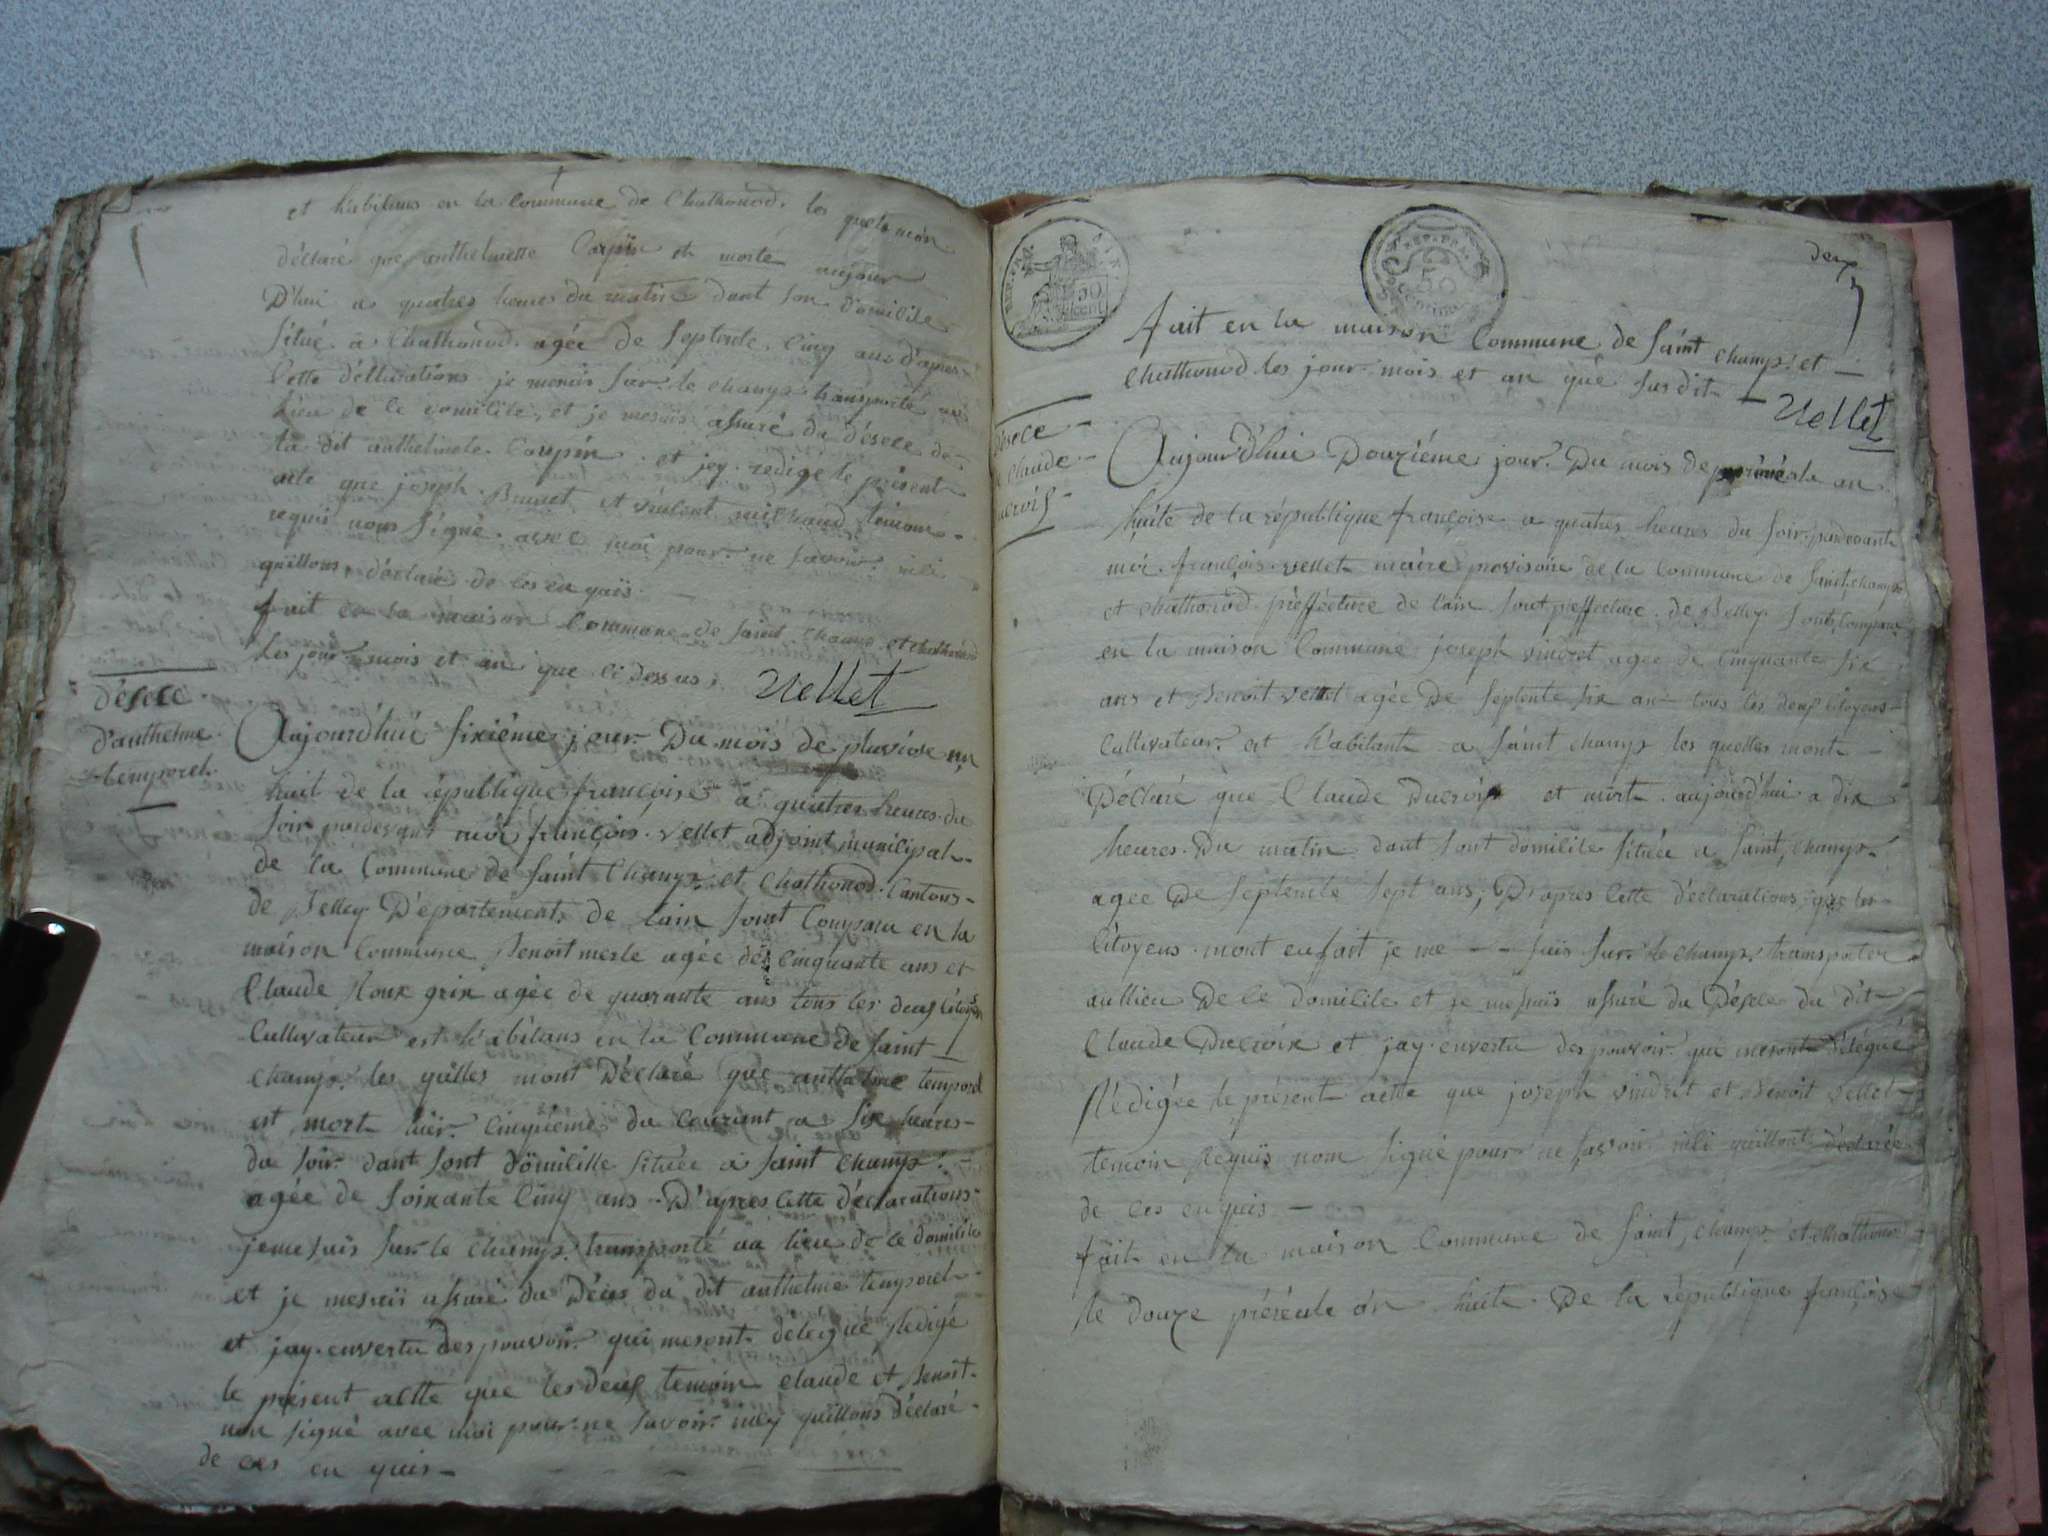 et habitans en la Commune de Chathonod. les quels mon
déclaré que anthelmette Coupin et morte aujour
D'hui a quatres heures du matin dant son domicile
situé a Chathonod. agée de septente cinq ans D'apres
cette déclarations je me suis sur le champs transporté au
lieu de ce domicile, et je mesuis assuré du déscee de
la dit anthelmete Coupin et jey redige le présent
acte que joseph Brunet et temoins
requis nons signé avec moi pour ne savoir nili
quillons déclaré de ces en quis
fait en la maison Commune de Saint Champ et chathonod
les jour mois et an que ci dessus. Vellet
Déscee
D'anthelme
temporel.
Aujourd'hui sixiéme jour Du mois de pluviose an
huit de la république françoise a quatres heures du
soir pardevant moi françois vellet adjoint municipal
de la Commune de Saint Champs et Chathonod Cantons
de Belley Département de lain sont Comparu en la
maison Commune Benoit merle agée de Cinquante ans et
Claude Roux grix agée de quarante ans tous les deux Citoyen
Cultivateur est habitans en la Commune de Saint
Champs. les quilles mont Déclaré que anthelme temporel
est mort hier Cinquiéme du Courant a six heures
du soir dant sont domicille située a Saint Champs.
agée de soixante Cinq ans D'apres cette déclarations
je me suis sur le champs transporté au lieu de ce domicile
et je mesuis assuré du Déces du dit anthelme temporel
et jay envertu des pouvoir qui mesont délegué Redigé
le présent actte que les deux temoin claude et Benoit
non signé avec moi pour ne savoir niley quillons déclaré
de ces en quis
deux
REP. FRA.
50 cent
REP. FRA.
50
centimes
fait en la maison Commune de Saint Champs et
Chathonod les jour mois et an que susdit Vellet
Déscee
de Claude
Ducroix
Aujourd'hui Douziéme jour Du mois de préréale an
huite de la république françoise a quatres heures du soir pardevant
moi françois vellet maire provisoire de la Commune de Saint Champs
et Chathonod préffécture de lain sout préffecture de Belley sont Comparu
en la maison Commune joseph vindret agée de Cinquante six
ans et Benoit vellet agée De septente six an tous les deux Citoyens
Cultivateur et habitant a Saint Champs les quelles mont
Déclaré que Claude Ducroix et mort aujourd'hui a dix
heures Du matin dant sont domicile située a Saint Champs
agée De septente sept ans, D'apres cette déclarations que les
Citoyens mont en fait je me suis sur le champs transporter
au lieu De ce domicile et je mesuis assuré du Déscee du dit
Claude Ducroix et jay envertu des pouvoir qui mesont délégué
Rédigée le présent actte que joseph vindret et Benoit vellet
temoin Réquis nom signé pour ne savoir nili quillont déclarée
de ces enquis
fait en la maison Commune de Saint Champs et chathonod
le douze préréale an huite De la république françoise